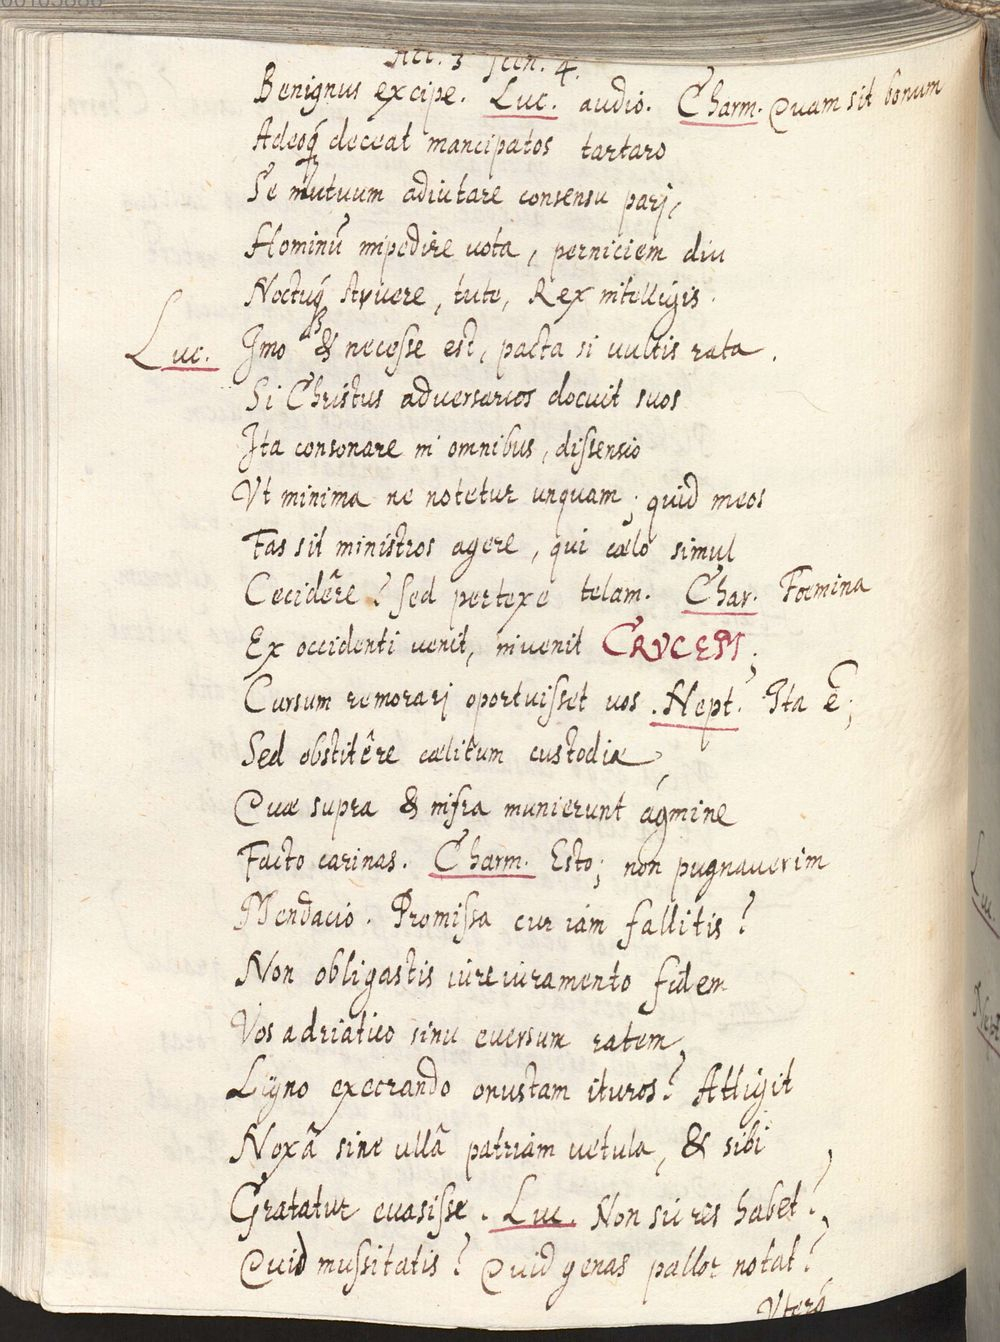 Act. 3 Scen. 4.
Benignus excipe. Luc. audio. Charm. Quam sit bonum
Adeoq́ deceat mancipatos tartaro
Se mutuum adiutare consensu parj,
Hominũ impedire uota, perniciem diu
Noctuq́ struere, tute, Rex intelligis.
Luc. Imo & necesse est, pacta si uultis rata.
Si Christus adversarios docuit suos
Ita consonare in omnibus, dissensio
Vt minima ne notetur unquam; quid meos
Fas sit ministros agere, qui cœlo simul
Cecidêre? Sed pertexe telam. Char. Foemina
Ex occidenti venit, invenit CRUCEM;
Cursum remorarj oportuisset uos. Nept. Ita ẽ;
Sed obstitêre cœlitum custodia
Quæ supra & infra munierunt ágmine
Facto carinas. Charm. Esto; non pugnaverim
Mendacio. Promissa cur iam fallitis?
Non obligastis iureiuramento fidem
Vos adriatico sinu euersum ratem
Ligno execrando onustam ituros? Attigit
Noxâ sine ullâ patriam uetula, & sibi
Gratatur euasisse. Luc. Non sii res habet?
Quid mussitatis? Quid genas pallor notat?
Vterq́